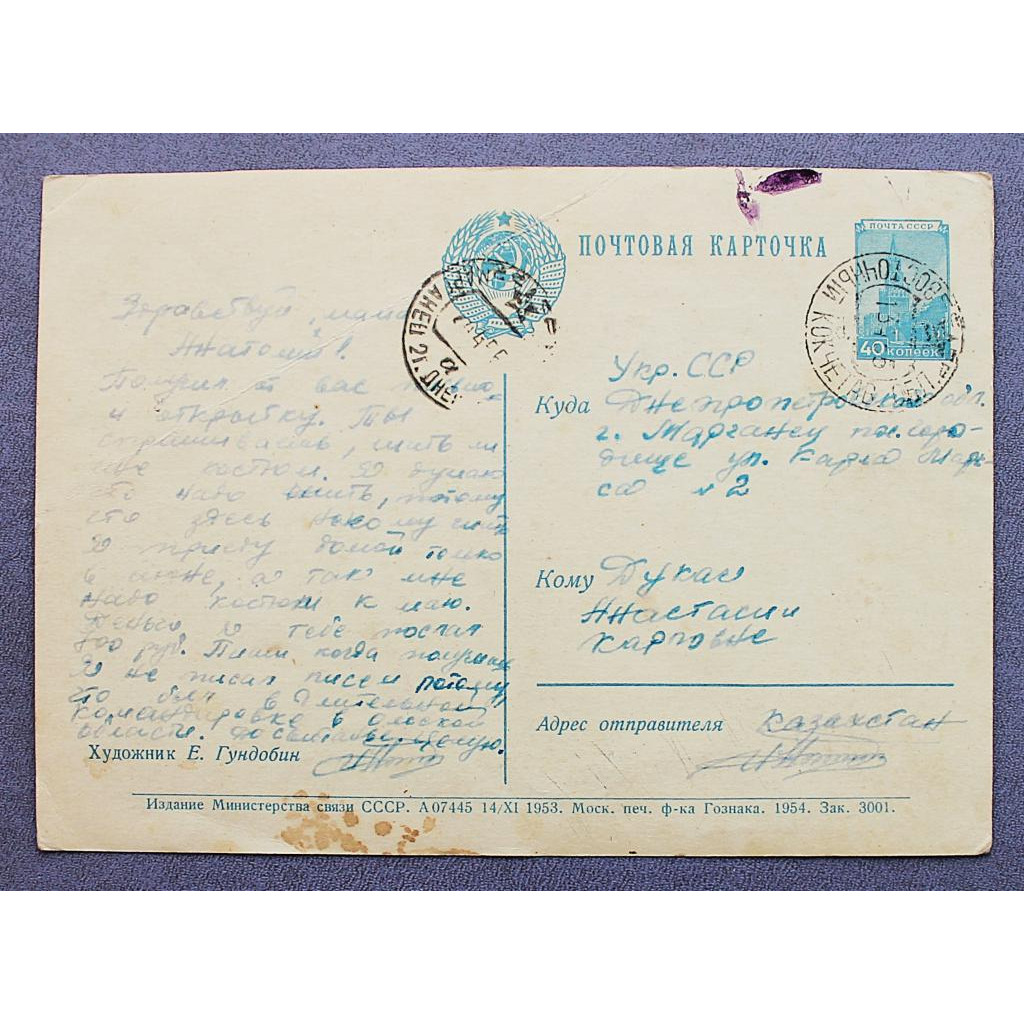 ПОЧТОВАЯ КАРТОЧКА
ПОЧТА СССР
40 КОПЕЕК
ВОСТОЧНЫЙ КОКЧЕТАВ
АНЕЦ
Здравствуй, мама
Анатолий!
Получил от вас письмо
и открытку. Ты
спрашиваешь, шить ли
мне костюм. Я думаю
что надо шить, потому
что здесь некому шить
Я приеду домой только
в июне, а так мне
надо костюм к маю.
Деньги я тебе послал
800 руб. Пиши когда получишь
Я не писал писем потому
что был в длительной
командировке в Омской
области. До свидания целую.
Художник Е. Гундобин
Укр. ССР
Куда Днепропетровская обл.
г. Марганец
ул. Карла Марк-
са №2
Кому Дукач
Анастасии
Карповне
Адрес отправителя Казахстан
Издание Министерства связи СССР. А 07445 14/XI 1953. Моск. печ. ф-ка Гознака. 1954. Зак. 3001.